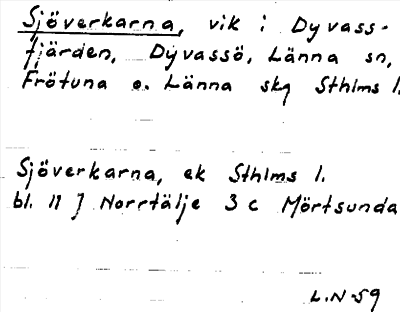 Sjöverkarna, vik i Dyvass-
fjärden, Dyvassö, Länna sn,
Frötuna o. Länna skg Sthlms l.
Sjöverkarna, ek Sthlms l.
bl. 11 J Norrtälje 3 c Mörtsunda
L.N-59